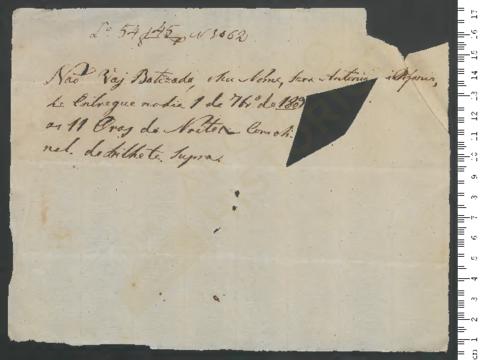 Lº 54 f 145 N 1062
Não Vay Batizado, Seu Nome, sera Antonio
he Entregue no dia 1 de 7bro de 183
as 11 Oras da Noite
nal. de bilhete Supra